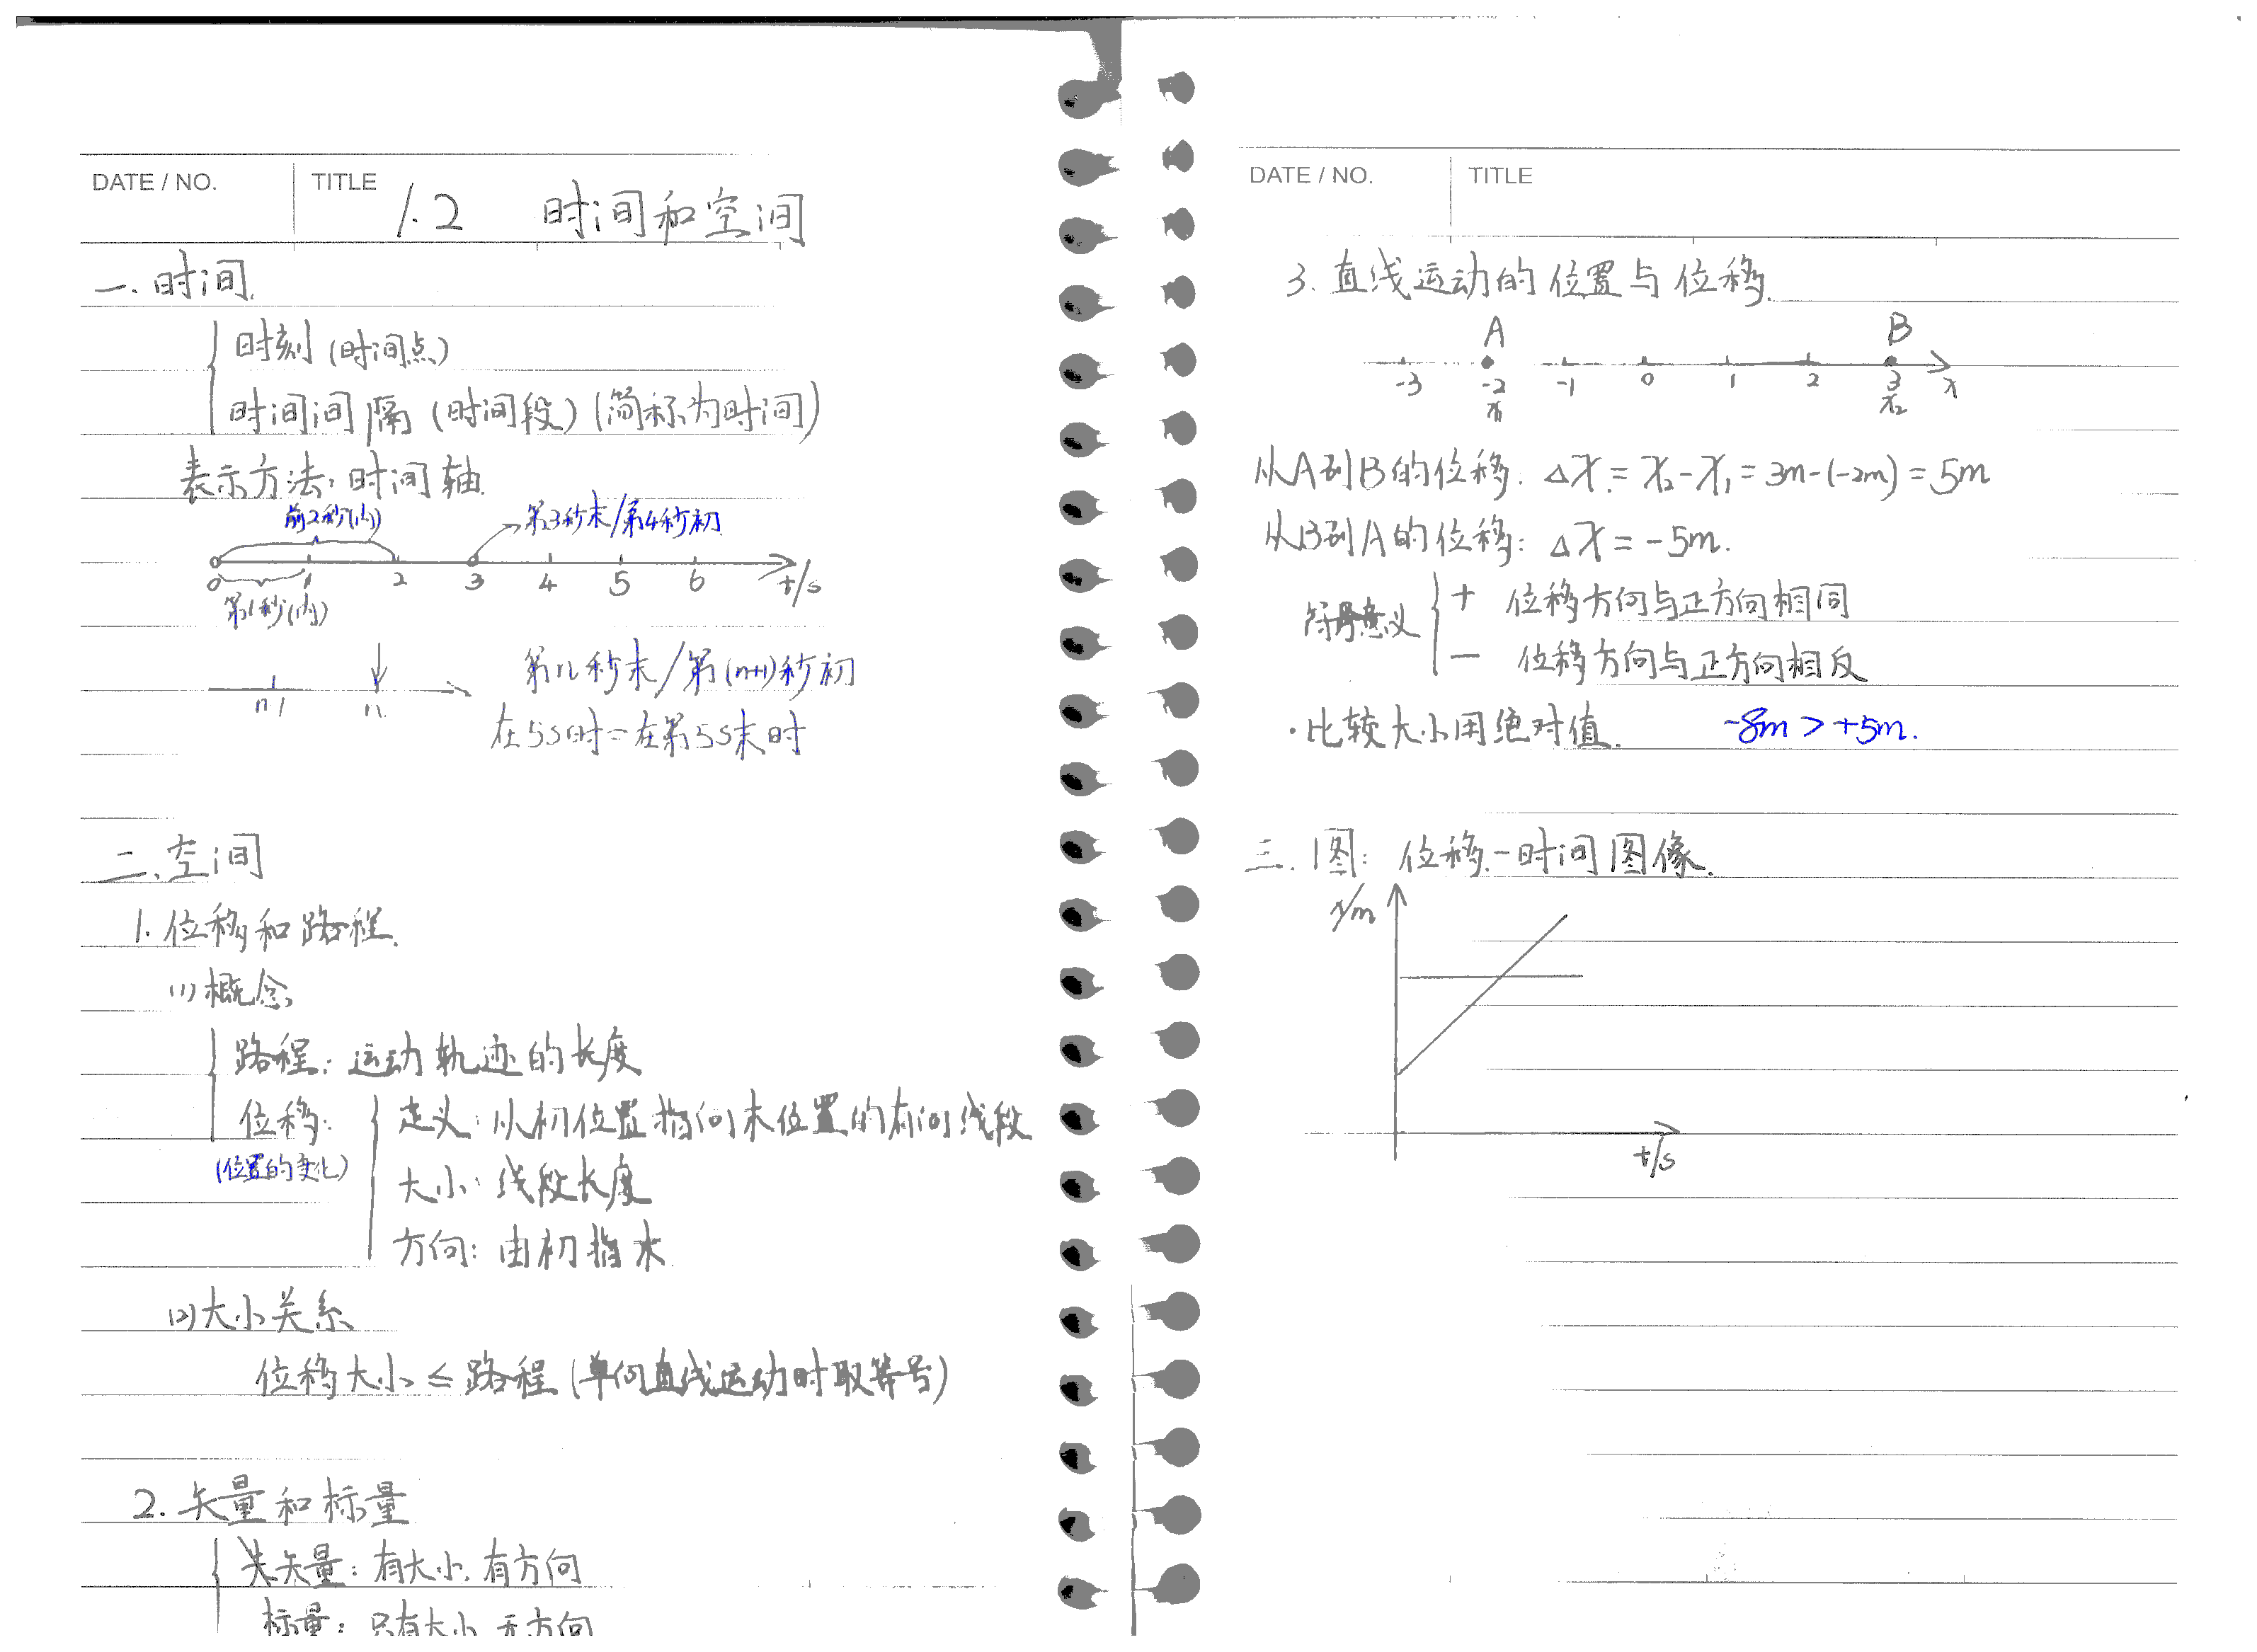 DATE / NO. TITLE 1.2 时间和空间
一.时间.
时刻(时间点)
时间间隔(时间段)(简称为时间)
表示方法:时间轴.
前2秒(内) 第3秒末/第4秒初
0 1 2 3 4 5 6 t/s
第1秒(内)
第n秒末/第(n+1)秒初
n-1 n
在5s时=在第5s末时
二.空间
1.位移和路程.
(1)概念
路程:运动轨迹的长度
位移: 定义:从初位置指向末位置的有向线段
(位置的变化)
大小:线段长度
方向:由初指末
(2)大小关系
位移大小≤路程(单向直线运动时取等号)
2.矢量和标量
矢量:有大小,有方向
标量:只有大小,无方向
DATE / NO. TITLE
3.直线运动的位置与位移.
A B
-3 -2 -1 0 1 2 3 x
x₁ x₂
从A到B的位移:Δx=x₂-x₁=3m-(-2m)=5m
从B到A的位移:Δx=-5m.
符号意义 + 位移方向与正方向相同
- 位移方向与正方向相反
·比较大小用绝对值. -8m>+5m.
三.图:位移-时间图像.
x/m
t/s